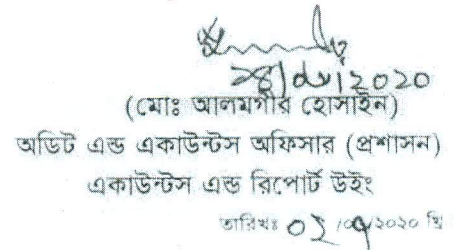 (মোঃ আলমগীর হোসাইন)
অডিট এন্ড একাউন্টস অফিসার (প্রশাসন)
একাউন্টস এন্ড রিপোর্ট উইং
তারিখঃ ০২/০৭/২০২০ খ্রি